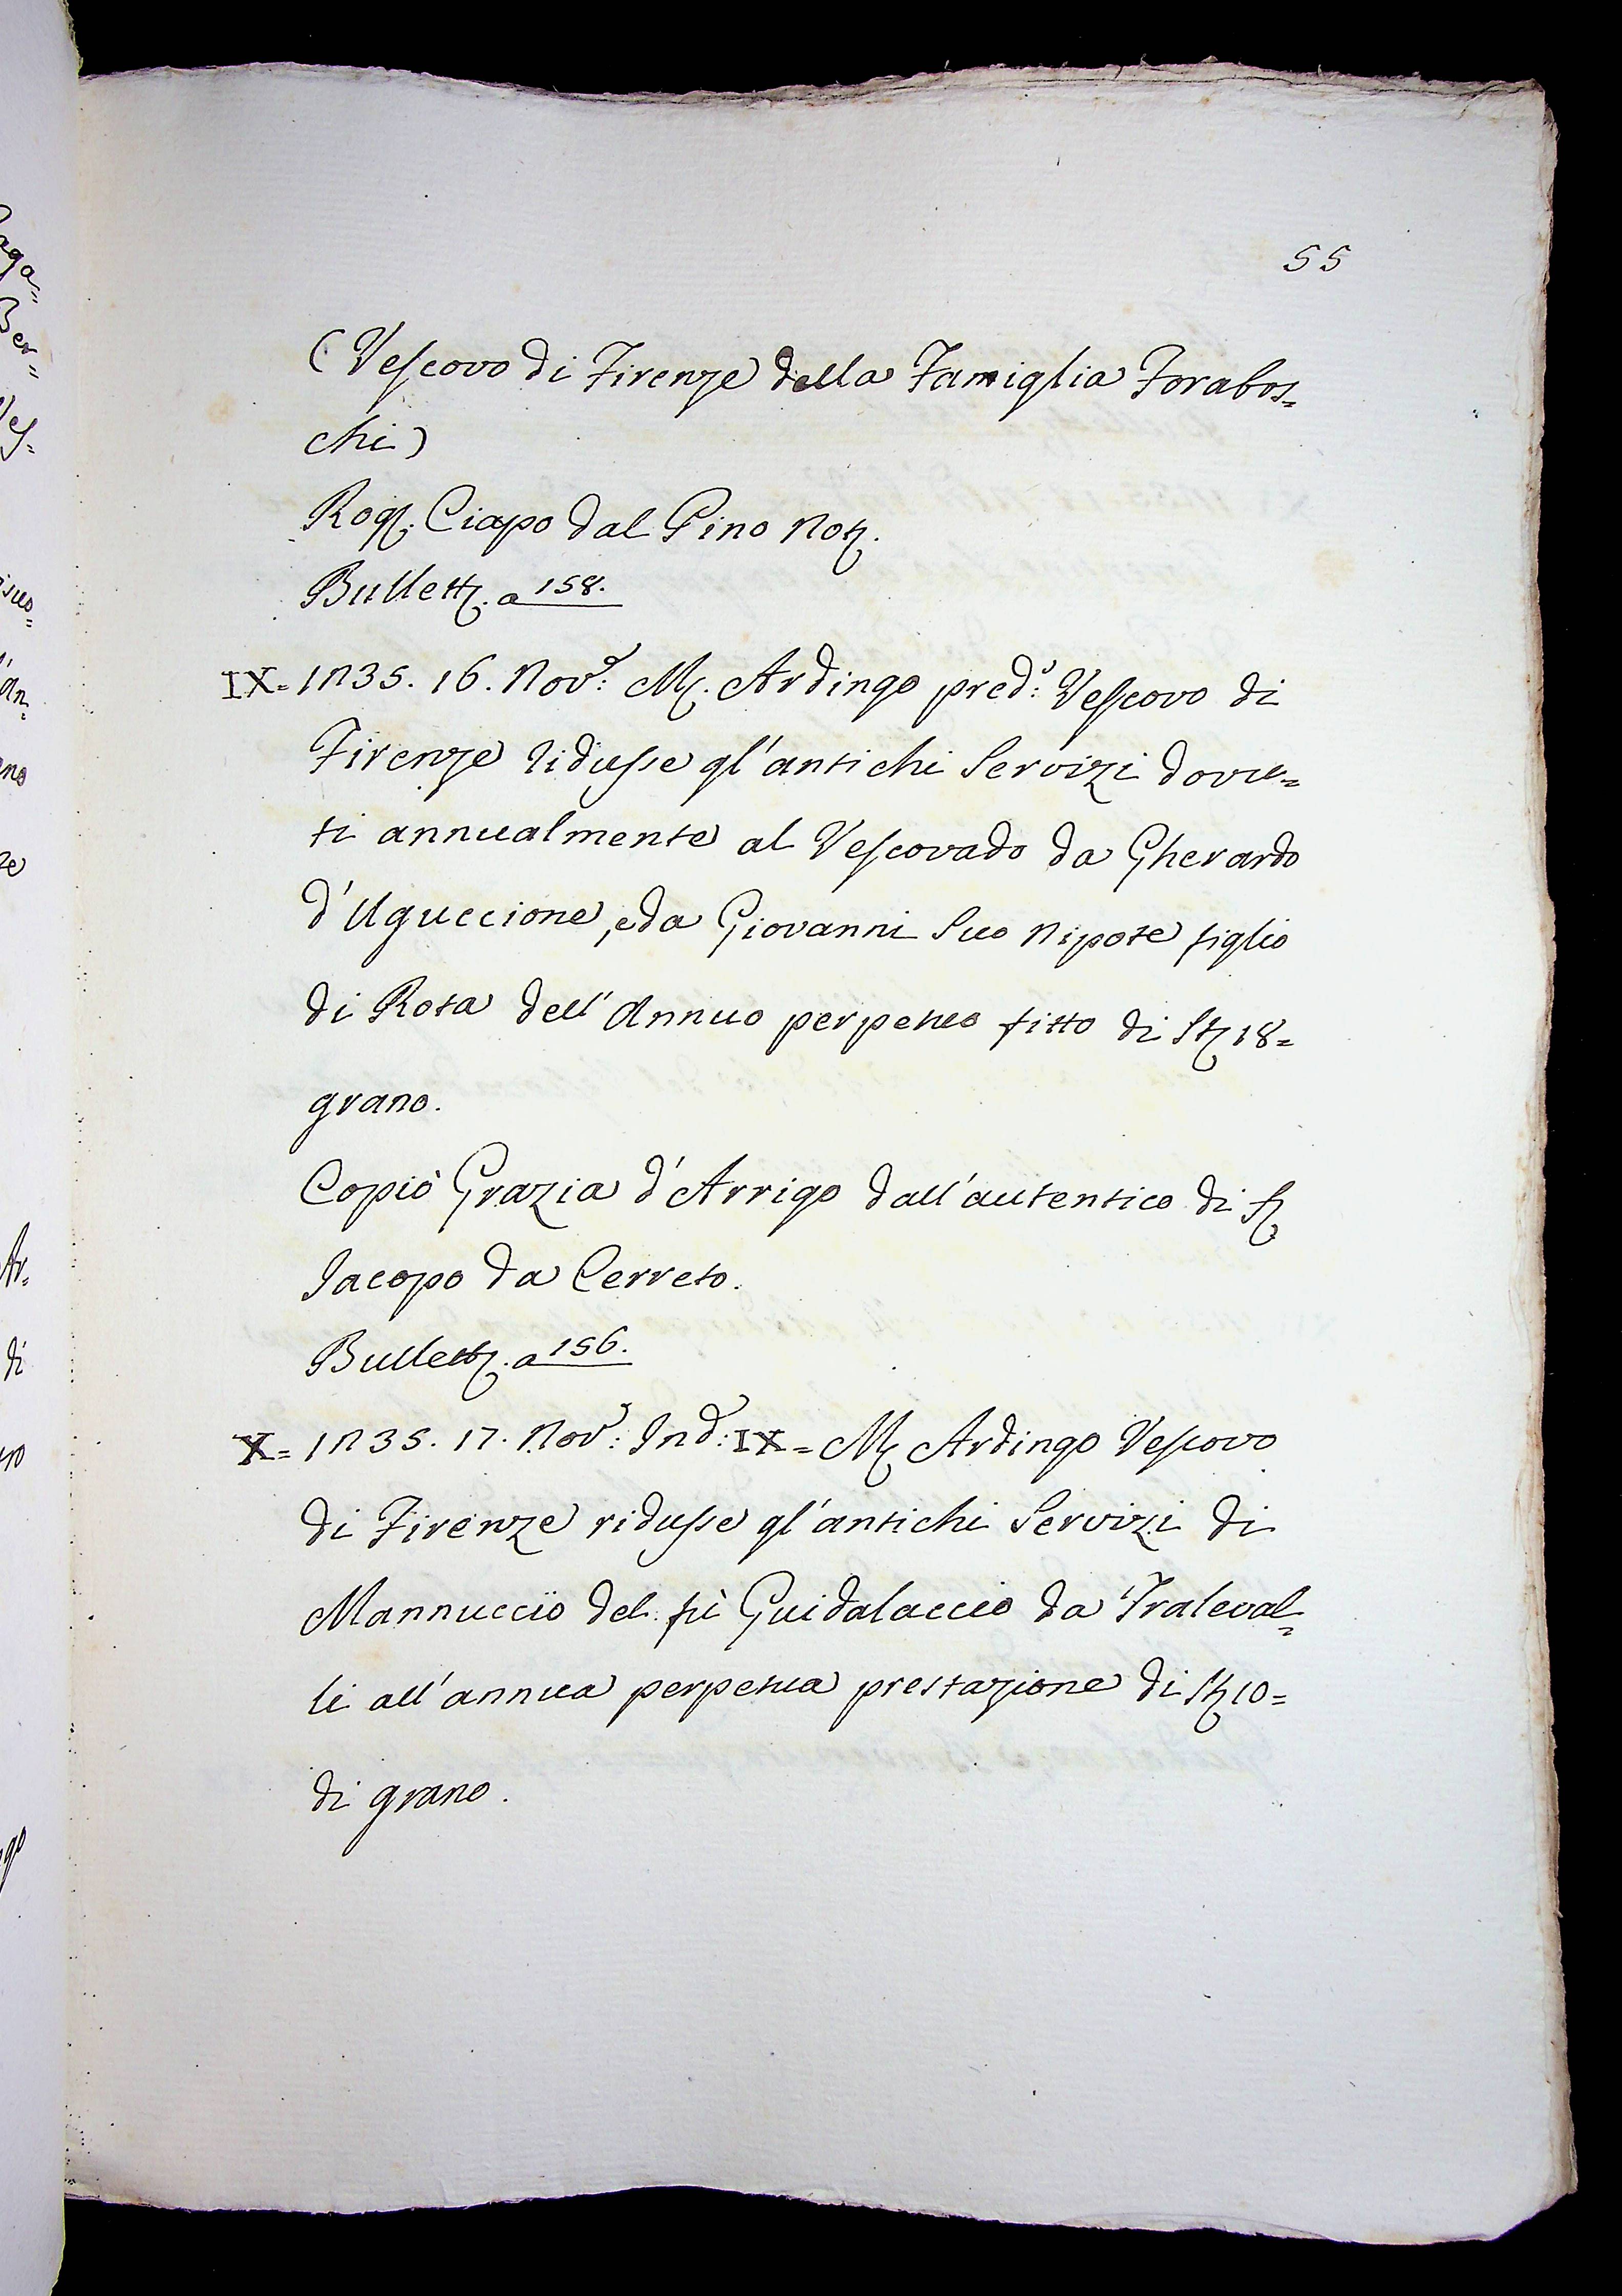 55
(Vescovo di Firenze della Famiglia Forabos=
chi)
Rog. Ciapo dal Pino Not.
Bullett. a 158.
IX= 1235. 16. Nov.e: M. Ardingo pred.o: Vescovo di
Firenze ridusse gl'antichi Servizi dovu=
ti annualmente al Vescovado da Gherardo
d'Uguccione, e da Giovanni Suo Nipote figlio
di Rota dell'Annuo perpetuo fitto di St. 18=
grano.
Copiò Grazia d'Arrigo dall'autentico di S.
Jacopo da Cerreto.
Bullett. a 156.
X= 1235. 17. Nov.e: Ind.e: IX= M. Ardingo Vescovo
di Firenze ridusse gl'antichi Servizi di
Mannuccio del fù Guidalaccio da Traleval=
li all'annua perpetua prestazione di St. 10=
di grano.